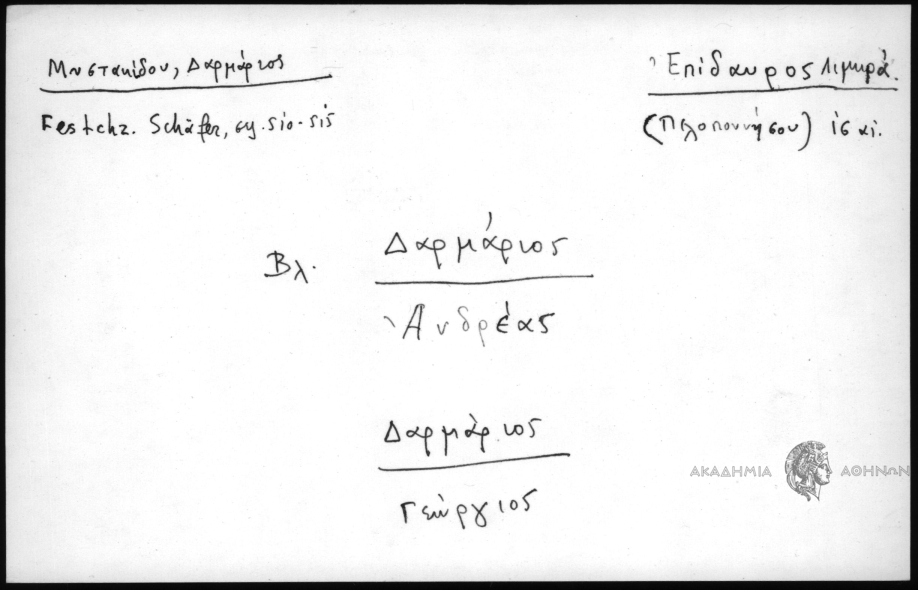 Μυστακίδου, Δαρμάριος
Festchr. Schäfer,
Ἐπίδαυρος Λιμηρά.
(Πελοποννήσου)
Βλ. Δαρμάριος
Ἀνδρέας
Δαρμάριος
Γεώργιος
ΑΚΑΔΗΜΙΑ ΑΘΗΝΩΝ